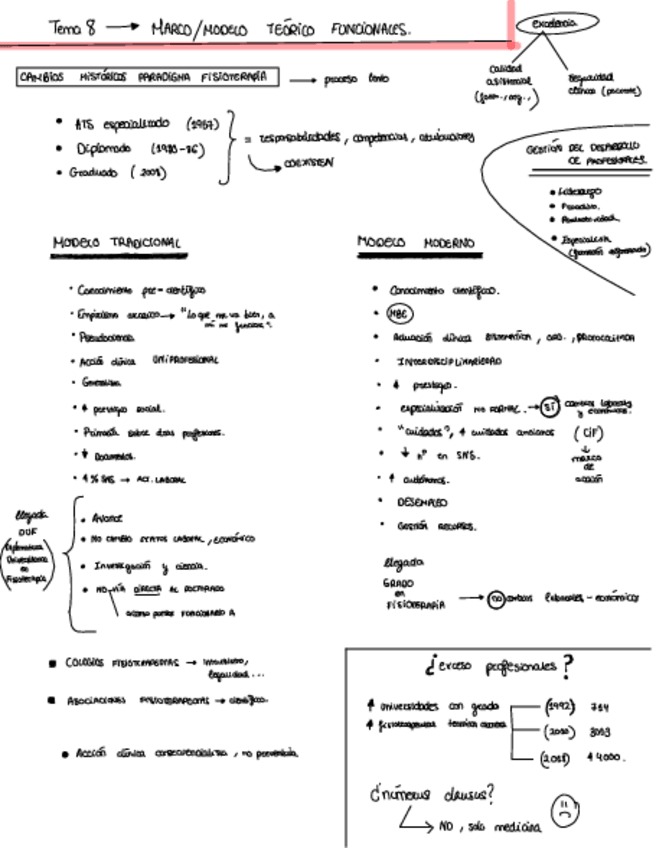 Tema 8 → MARCO/MODELO TEÓRICO FUNCIONALES.
excelencia
calidad asistencial
seguridad clínica (paciente)
CAMBIOS HISTÓRICOS PARADIGMA FISIOTERAPIA → proceso lento
• ATS especialitzado (1957)
• Diplomado (1980-86)
• Graduado
= responsabilidades, competencias, atribuciones
COEXISTEN
GESTIÓN DEL DESARROLLO DE PROFESIONALES
• Liderazgo
MODELO TRADICIONAL
• Conocimiento pre-científico
• Empirismo → "Lo que me va bien, a mí me funciona".
• Acción clínica UNIPROFESIONAL
• Generalista
• ↓ prestigio social.
• Primacía sobre otras profesiones.
• ↓ Documentos.
• ↑ % SNS → ACT. LABORAL
llegada DUF
(Diplomatura Universitaria en Fisioterapia)
• Avance
• NO CAMBIO STATUS LABORAL, ECONÓMICO
• Investigación y ciencia.
• NO VÍA DIRECTA AL DOCTORADO
▪ COLEGIOS FISIOTERAPEUTAS → intrusismo, legalidad...
▪ ASOCIACIONES FISIOTERAPEUTAS → científico.
• Acción clínica consecuencialista, no preventiva.
MODELO MODERNO
• Conocimiento científico.
• MBE
• Actuación clínica SISTEMÁTICA, ORG., PROTOCOLIZADA
• INTERDISCIPLINARIEDAD
• ↑ prestigio.
• especialización NO FORMAL. → SÍ cambios laborales y económicos.
• "cuidados", ↑ cuidados ancianos (CIF)
↓
marco de acción
• ↓ nº en SNS.
• ↑ autónomos.
• DESEMPLEO
• GESTIÓN RECURSOS.
llegada GRADO en FISIOTERAPIA → no cambios laborales - económicos
¿exceso profesionales?
↑ universidades con grado
↑ fisioterapeutas
(1992) 714
(2000) 3093
¿númerus clausus?
→ NO, solo medicina